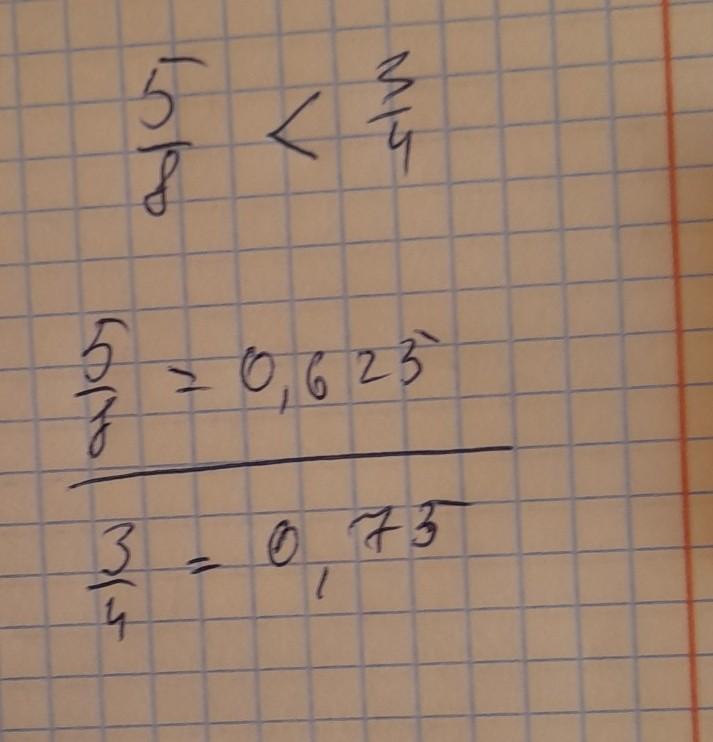 5/8 < 3/4
5/8 = 0,625
3/4 = 0,75